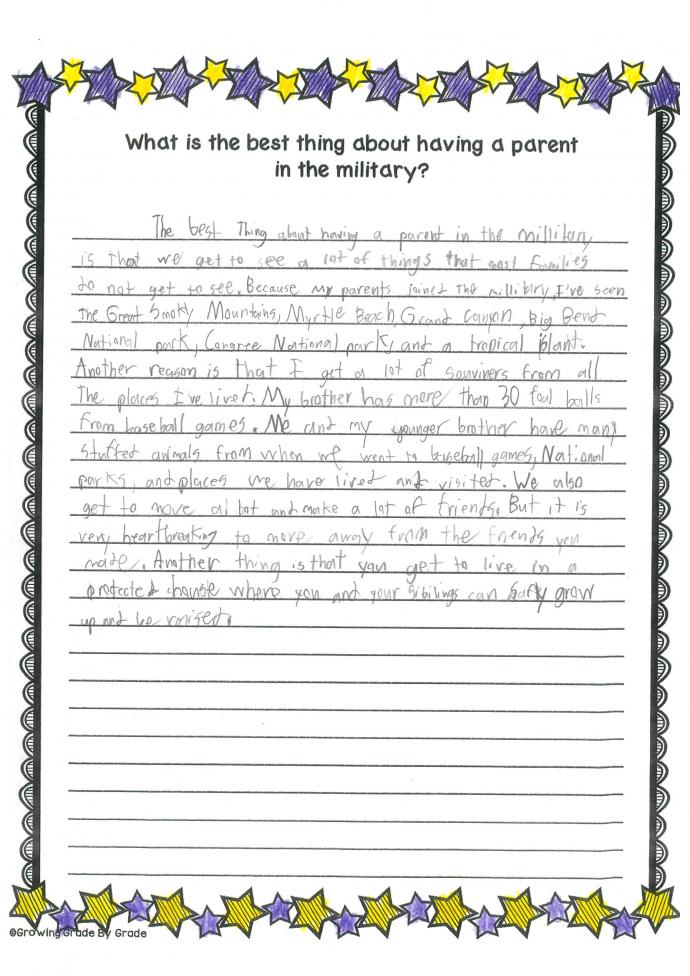 What is the best thing about having a parent
in the military?
The best Thing about having a parent in the millitary
is that we get to see a lot of things that most families
do not get to see. Because my parents joined the millitary, I've seen
The Great Smoky Mountains, Myrtle Beach, Grand canyon, Big Bend
National park, Congree National park, and a tropical plant.
Another reason is that I get a lot of souviners from all
The places I've lived. My brother has more than 30 foul balls
from baseball games. Me and my younger brother have many
stuffed animals from when we went to baseball games, National
parks, and places we have lived and visited. We also
get to move al lot and make a lot of friends. But it is
very heartbreaking to move away from the friends you
made. Another thing is that you get to live in a
protected house where you and your sibilings can safty grow
up and be raised.
©Growing Grade By Grade